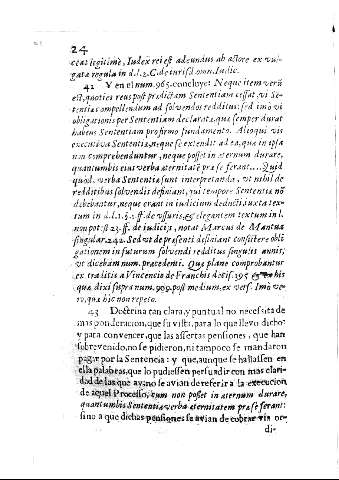 24
ceat legitimè, Iudex rei est adeundus ab actore ex vul-
gata regula in d.l.2.C.de iurisd.omn.Iudic.
42 Y en el num.965.concluye: Neque item verũ
est, quoties reus post prædictam Sententiam cessat, vt Se-
tentias compellendum ad solvendos redditus: sed imò vi
obligationis per Sententiam declarata, que semper durat
habens Sententiam pro firmo fundamento. Alioqui vis
executiva Sententiæ, neque se extendit ad ea, que in ipsa
non comprehenduntur, neque posset in æternum durare,
quantumbis eius verba æternitatem præ se ferant.... Quid
quod. verba Sententiæ sunt interpretanda, vt nihil de
redditibus solvendis definiant, qui tempore Sententiæ nõ
debebantur, neque erant in iudicium deducti, iuxta tex-
tum in d.l.1.§. ff. de vssuris, & elegantem textum in l.
non potest 23. ff. de iudicijs, notat Marcus de Mantua
singular.242. Sed vt de præsenti definiant consistere obli
gationem in futurum solvendi redditus singulis annis,
vt dicebam num. præcedenti. Que plane comprobantur
ex traditis à Vincencio de Franchis decis.395 his
que dixi supra num.909. post medium, ex vers. Imò ve-
rò, que hic non repeto.
43 Doctrina tan clara, y puntual no necessita de
mas ponderacion, que su vista, para lo que llevo dicho
y para convencer, que las assertas pensiones, que han
sobrevenido, no se pidieron, ni tampoco se mandaron
pagar por la Sentencia: y que, aunque se hallassen en
ella palabras, que lo pudiessen persuadir con mas clari-
dad de las que ay, no se avian de referir a la execucion
de aquel Processo, cum non posset in æternum durare,
quantumbis Sententiæ verba æternitatem præ se ferant:
sino a que dichas pensiones se avian de cobrar via or-
di-